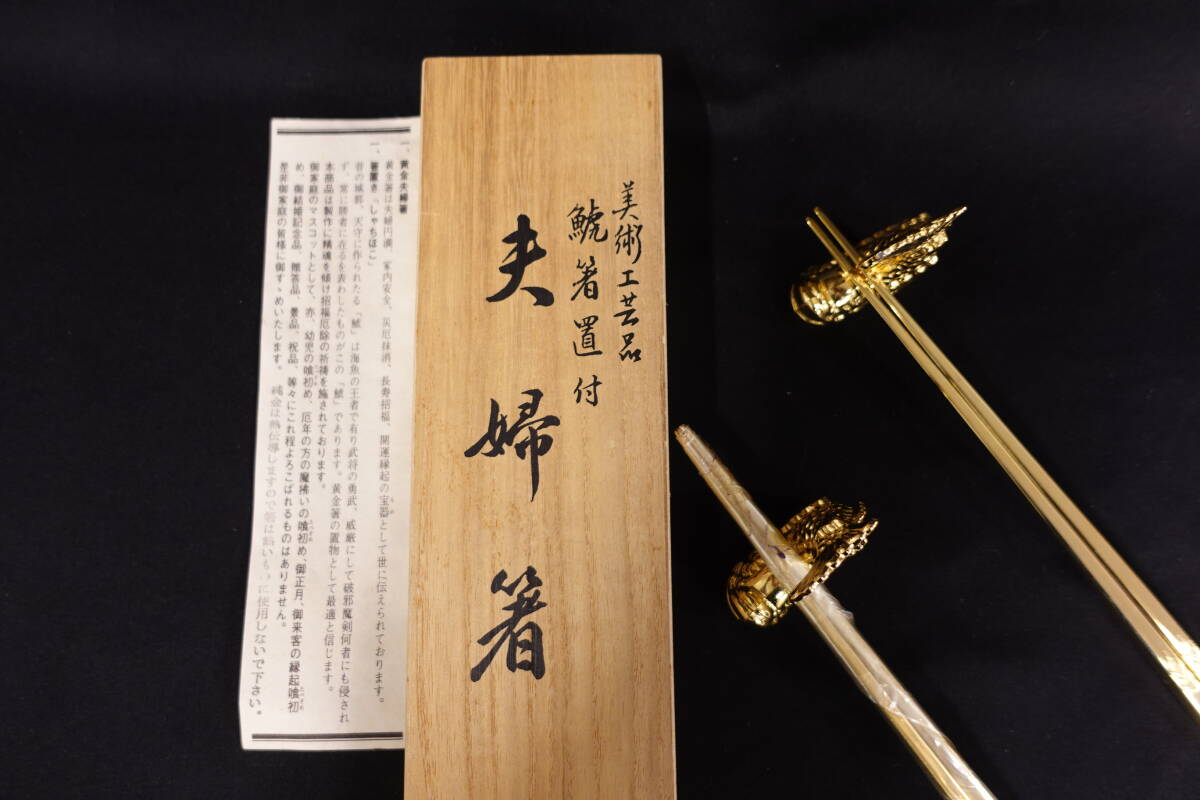 美術工芸品
鯱箸置付
夫婦箸
一、黄金夫婦箸
黄金箸は夫婦円満、家内安全、災厄抹消、長寿招福、開運縁起の宝器として世に伝えられております。
一、箸置き「しゃちほこ」
昔の城郭、天守に作られたる「鯱」は海魚の王者で有り武将の勇武、威厳にして破邪魔剣何者にも侵され
ず、常に勝者に在るを表わしたものがこの「鯱」であります。黄金箸の置物として最適と信じます。
本商品は製作に精魂を傾け招福厄除の祈祷を施されております。
御家庭のマスコットとして、亦、幼児の喰初め、厄年の方の魔拂いの喰初め、御正月、御来客の縁起喰初
め、御結婚記念品、贈答品、景品、祝品、等々にこれ程よろこばれるものはありません。
是非御家庭の皆様に御すゝめいたします。
純金は熱伝導しますので箸は熱いものに使用しないで下さい。